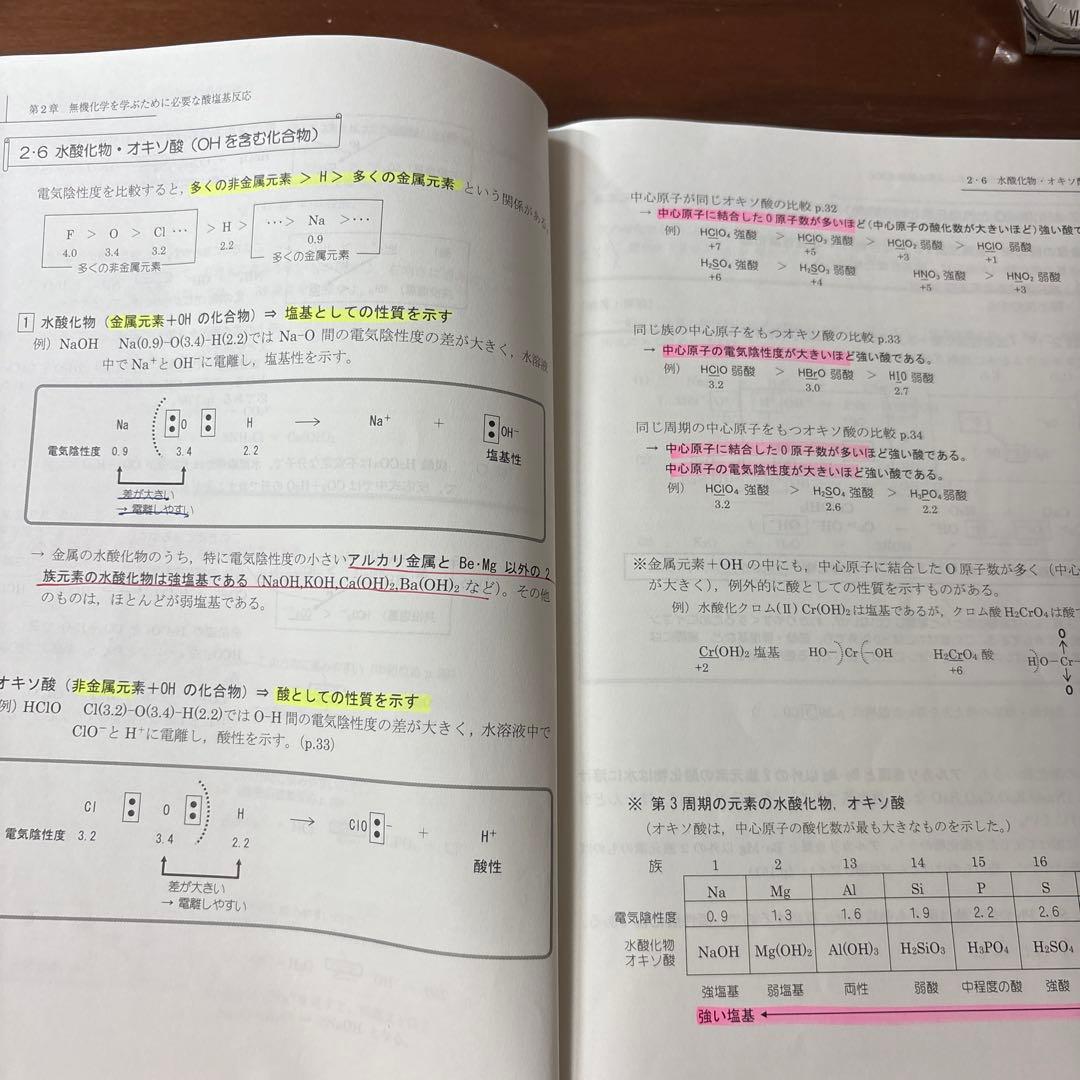 第2章 無機化学を学ぶために必要な酸塩基反応
2・6 水酸化物・オキソ酸（OHを含む化合物）
電気陰性度を比較すると，多くの非金属元素 > H > 多くの金属元素 という関係がある。
F > O > Cl ⋯ > H > ⋯> Na >⋯
4.0 3.4 3.2 2.2 0.9
多くの非金属元素 多くの金属元素
1 水酸化物（金属元素+OH の化合物）⇒ 塩基としての性質を示す
例）NaOH Na(0.9)-O(3.4)-H(2.2)では Na-O 間の電気陰性度の差が大きく，水溶液
中で Na⁺と OH⁻に電離し，塩基性を示す。
Na O H → Na⁺ + OH⁻
電気陰性度 0.9 3.4 2.2 塩基性
差が大きい
→ 電離しやすい
→ 金属の水酸化物のうち，特に電気陰性度の小さいアルカリ金属と Be・Mg 以外の 2
族元素の水酸化物は強塩基である（NaOH,KOH,Ca(OH)₂,Ba(OH)₂ など）。その他
のものは，ほとんどが弱塩基である。
オキソ酸（非金属元素+OH の化合物）⇒ 酸としての性質を示す
例）HClO Cl(3.2)-O(3.4)-H(2.2)では O-H 間の電気陰性度の差が大きく，水溶液中で
ClO⁻と H⁺に電離し，酸性を示す。(p.33)
Cl O H → ClO⁻ + H⁺
電気陰性度 3.2 3.4 2.2 酸性
差が大きい
→ 電離しやすい
2・6 水酸化物・オキソ
中心原子が同じオキソ酸の比較 p.32
→ 中心原子に結合した O 原子数が多いほど（中心原子の酸化数が大きいほど）強い酸で
例） HClO₄ 強酸 > HClO₃ 強酸 > HClO₂ 弱酸 > HClO 弱酸
+7 +5 +3 +1
H₂SO₄ 強酸 > H₂SO₃ 弱酸 HNO₃ 強酸 > HNO₂ 弱酸
+6 +4 +5 +3
同じ族の中心原子をもつオキソ酸の比較 p.33
→ 中心原子の電気陰性度が大きいほど強い酸である。
例） HClO 弱酸 > HBrO 弱酸 > HIO 弱酸
3.2 3.0 2.7
同じ周期の中心原子をもつオキソ酸の比較 p.34
→ 中心原子に結合した O 原子数が多いほど強い酸である。
中心原子の電気陰性度が大きいほど強い酸である。
例） HClO₄ 強酸 > H₂SO₄ 強酸 > H₃PO₄ 弱酸
3.2 2.6 2.2
※金属元素+OH の中にも，中心原子に結合した O 原子数が多く（中心
が大きく），例外的に酸としての性質を示すものがある。
例）水酸化クロム(Ⅱ) Cr(OH)₂は塩基であるが，クロム酸 H₂CrO₄は酸で
Cr(OH)₂ 塩基 HO-)Cr(-OH H₂CrO₄ 酸 H)O-Cr-
+2 +6
O
O
※ 第3周期の元素の水酸化物，オキソ酸
（オキソ酸は，中心原子の酸化数が最も大きなものを示した。）
族 1 2 13 14 15 16
Na Mg Al Si P S
電気陰性度 0.9 1.3 1.6 1.9 2.2 2.6
水酸化物
オキソ酸 NaOH Mg(OH)₂ Al(OH)₃ H₂SiO₃ H₃PO₄ H₂SO₄
強塩基 弱塩基 両性 弱酸 中程度の酸 強酸
強い塩基 ←